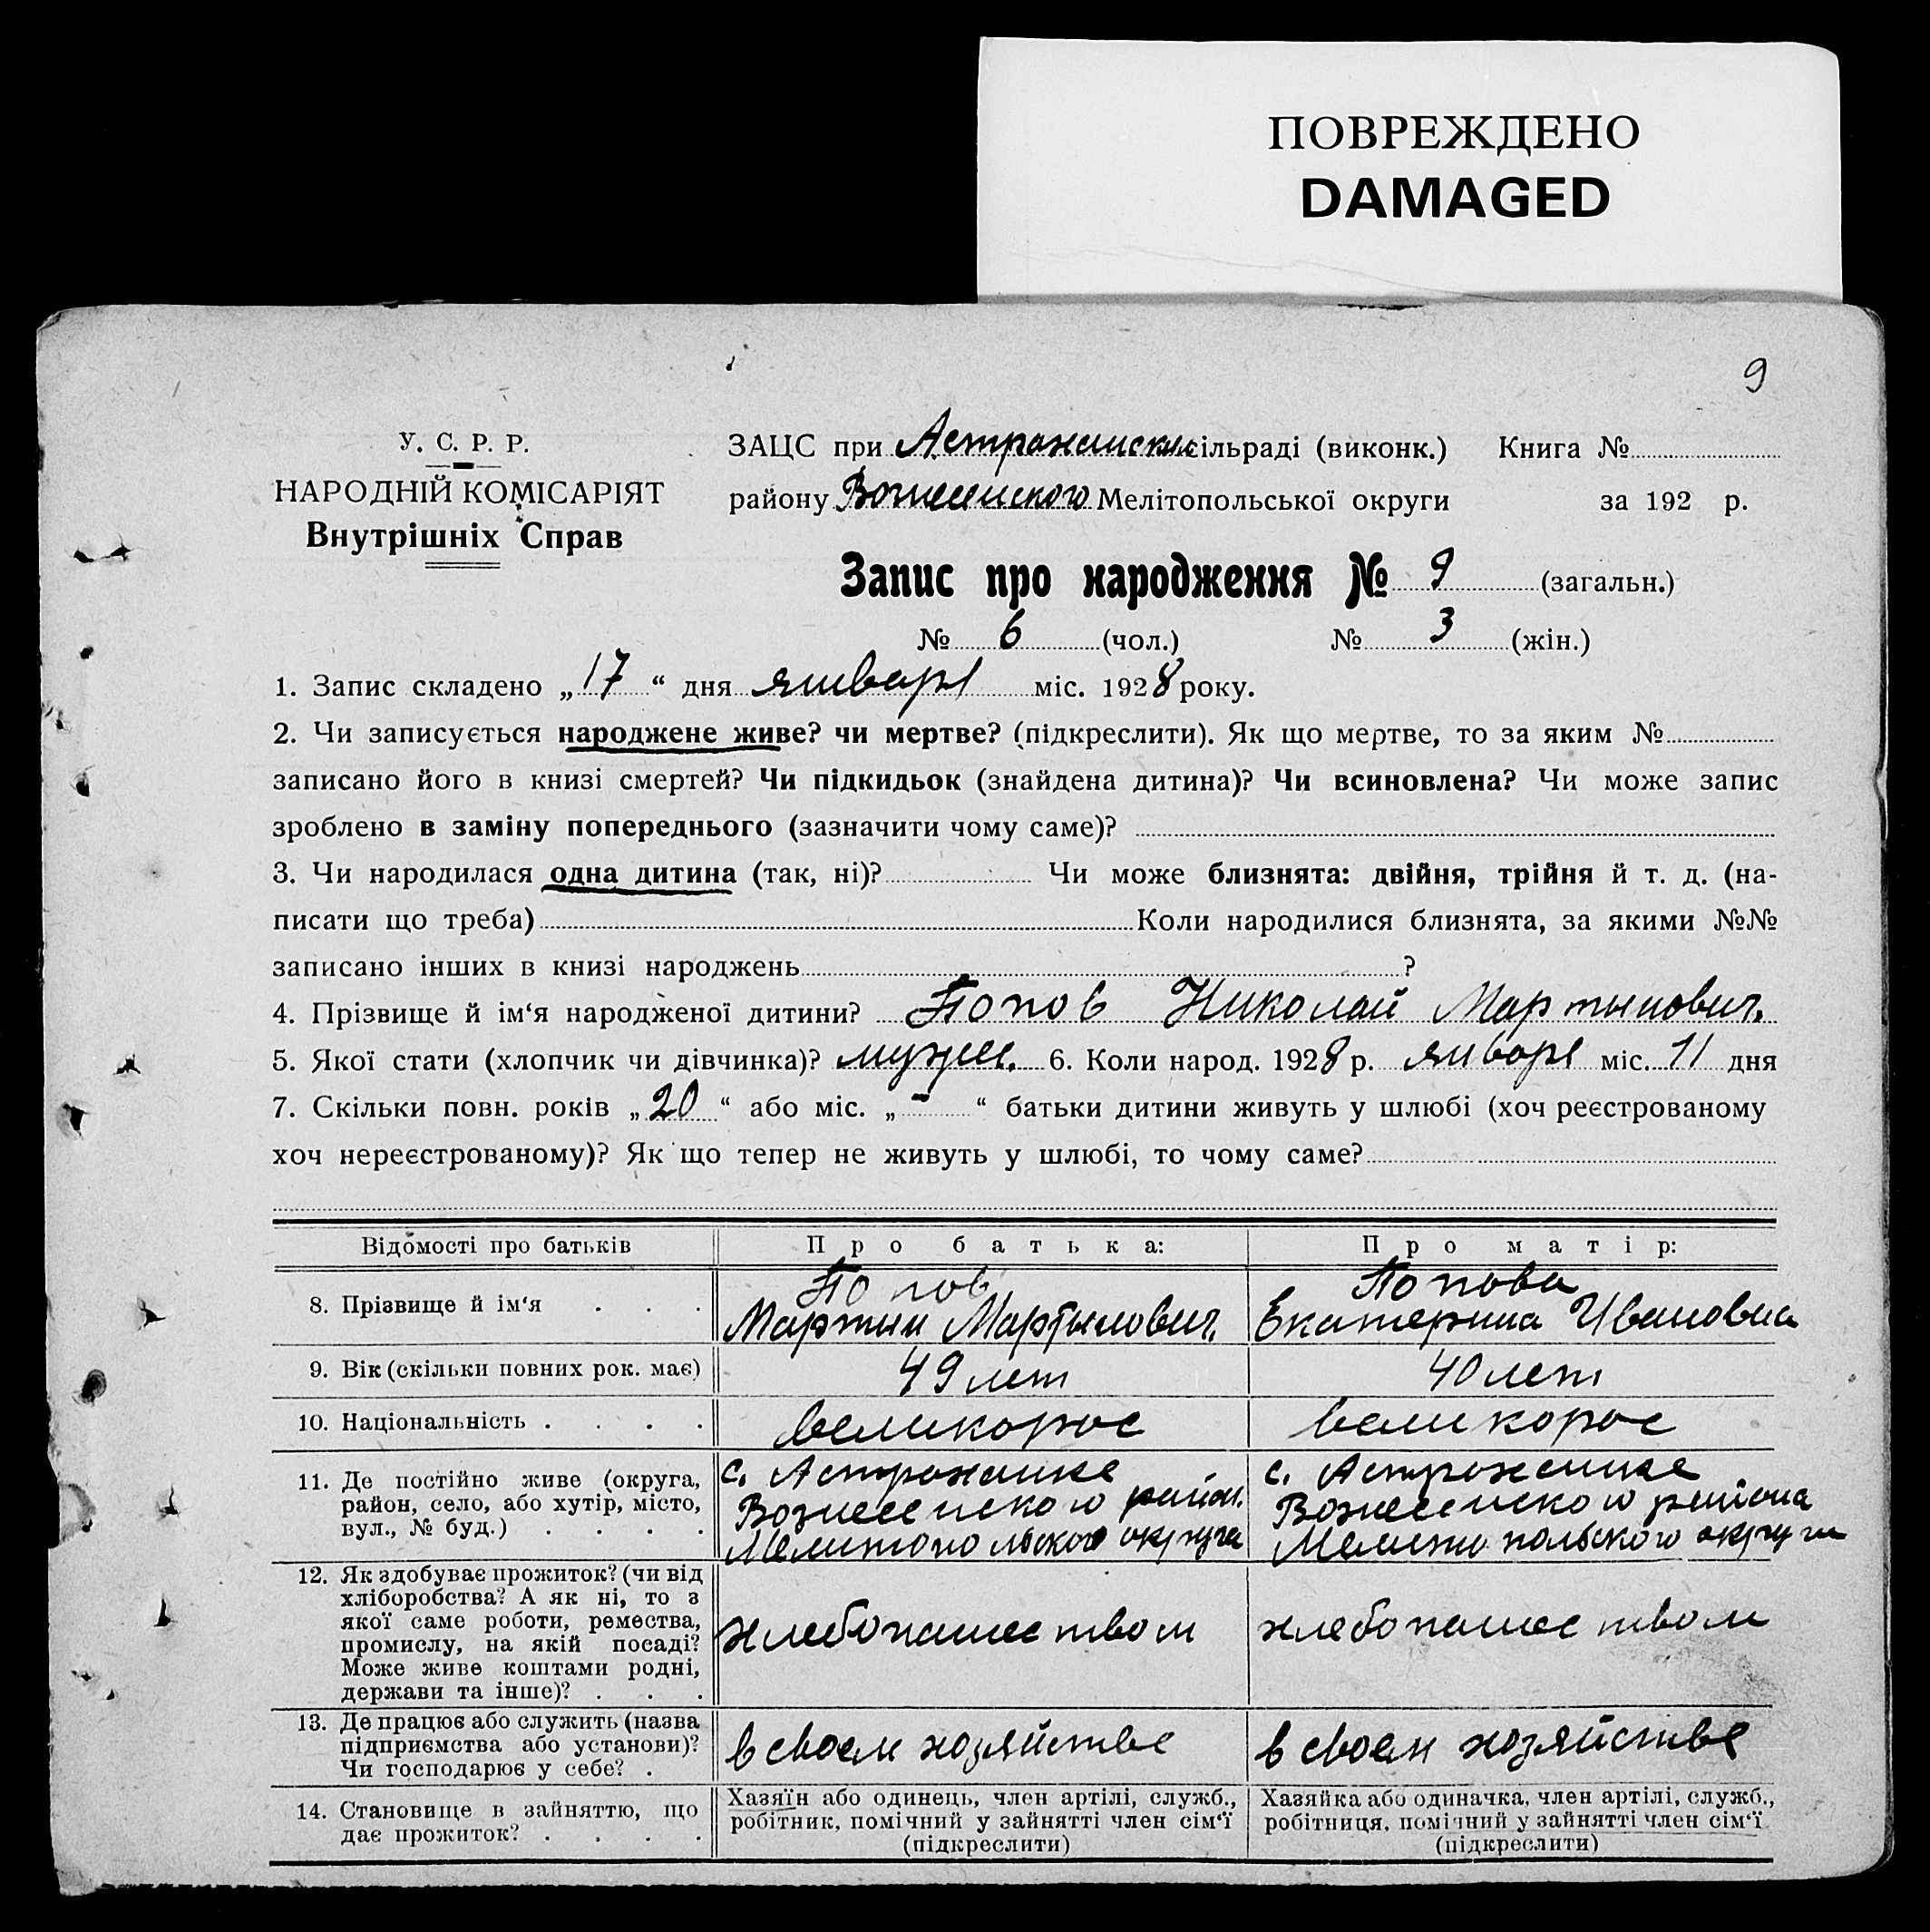 ПОВРЕЖДЕНО
DAMAGED
9
У. С. Р. Р.
НАРОДНІЙ КОМІСАРІЯТ
Внутрішніх Справ
ЗАЦС при Астраханским сільраді (виконк.) Книга №
району Вознесенского Мелітопольської округи за 192 р.
Запис про народження № 9 (загальн.)
№ 6 (чол.) № 3 (жін.)
1. Запис складено „17“ дня январе міс. 1928 року.
2. Чи записується народжене живе? чи мертве? (підкреслити). Як що мертве, то за яким №
записано його в книзі смертей? Чи підкидьок (знайдена дитина)? Чи всиновлена? Чи може запис
зроблено в заміну попереднього (зазначити чому саме)?
3. Чи народилася одна дитина (так, ні)? Чи може близнята: двійня, трійня й т. д. (на-
писати що треба) Коли народилися близнята, за якими №№
записано інших в книзі народжень ?
4. Прізвище й ім‘я народженої дитини? Попов Николай Мартынович.
5. Якої стати (хлопчик чи дівчинка)? мужск. 6. Коли народ. 1928 р. январе міс. 11 дня
7. Скільки повн. років „20“ або міс. „-“ батьки дитини живуть у шлюбі (хоч реєстрованому
хоч нереєстрованому)? Як що тепер не живуть у шлюбі, то чому саме?
Відомості про батьків Про батька: Про матір:
8. Прізвище й ім‘я . . . Попов Мартын Мартынович. Попова Екатерина Ивановна
9. Вік (скільки повних рок. має) 49 лет 40 лет
10. Національність . . . . великорос великорос
11. Де постійно живе (округа,
район, село, або хутір, місто,
вул., № буд.) . . . .
с. Астраханке
Вознесенского район.
Мелитопольского округа
с. Астраханке
Вознесенского района
Мелитопольского округа
12. Як здобуває прожиток? (чи від
хліборобства? А як ні, то з
якої саме роботи, ремества,
промислу, на якій посаді?
Може живе коштами родні,
держави та інше)? . . .
хлебопашеством хлебопашеством
13. Де працює або служить (назва
підприємства або установи)?
Чи господарює у себе? .
в своем хозяйстве в своем хозяйстве
14. Становище в зайняттю, що
дає прожиток? . . . .
Хазяїн або одинець, член артілі, служб.,
робітник, помічний у зайнятті член сім‘ї
(підкреслити)
Хазяйка або одиначка, член артілі, служб.,
робітниця, помічний у зайнятті член сім‘ї
(підкреслити)